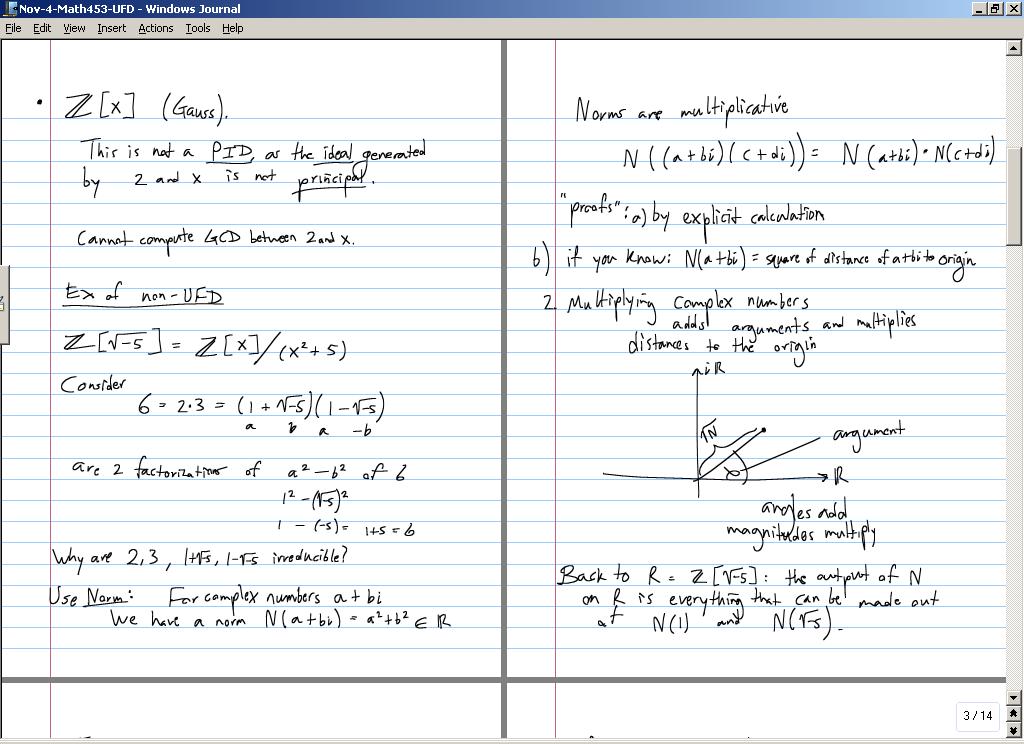 Nov-4-Math453-UFD - Windows Journal
File Edit View Insert Actions Tools Help
• ℤ[x] (Gauss).
This is not a PID, as the ideal generated
by 2 and x is not principal.
Cannot compute GCD between 2 and x.
Ex of non-UFD
ℤ[√-5] = ℤ[x]/(x²+5)
Consider
6 = 2·3 = (1 + √-5)(1 - √-5)
a b a -b
are 2 factorizations of a² - b² of 6
1² - (√-5)²
1 - (-5) = 1+5 = 6
Why are 2,3, 1+√-5, 1-√-5 irreducible?
Use Norm: For complex numbers a + bi
We have a norm N(a+bi) = a²+b² ∈ ℝ
Norms are multiplicative
N((a+bi)(c+di)) = N(a+bi)·N(c+di)
"proofs": a) by explicit calculation
b) if you know: N(a+bi) = square of distance of a+bi to origin
2. Multiplying complex numbers
adds arguments and multiplies
distances to the origin
iℝ
√N
argument
ℝ
angles add
magnitudes multiply
Back to R = ℤ[√-5]: the output of N
on R is everything that can be made out
of N(1) and N(√-5).
3 / 14